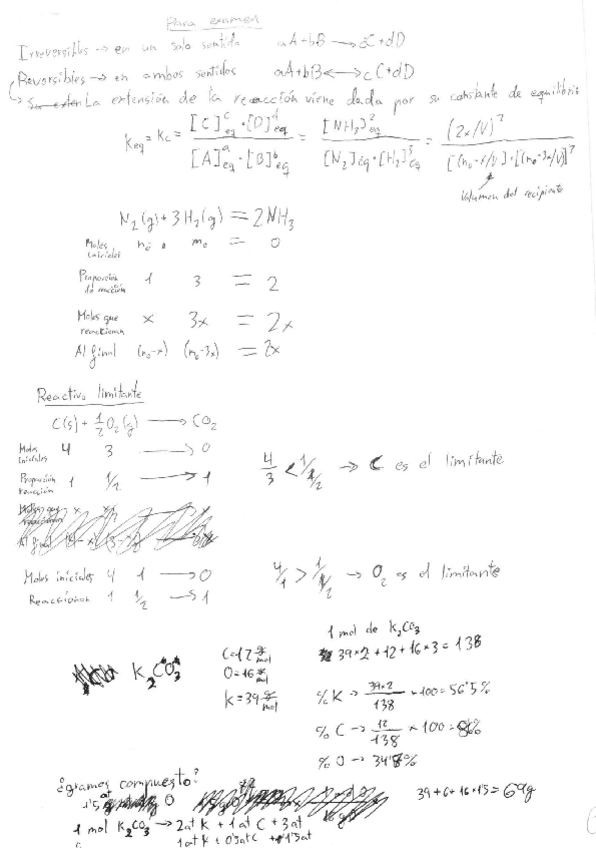 Para examen
Irreversibles → en un solo sentido aA+bB → cC+dD
Reversibles → en ambos sentidos aA+bB ↔ cC+dD
→ La extensión de la reacción viene dada por su constante de equilibrio
Keq = Kc = [C]^c eq · [D]^d eq / [A]^a eq · [B]^b eq = [NH3]^2 eq / [N2]eq · [H2]^3 eq = (2x/V)^2 / [(n0-x/V] · [(m0-3x/V)]^3
Volumen del recipiente
N2(g) + 3H2(g) = 2NH3
Moles iniciales n0 m0 = 0
Proporción de reacción 1 3 = 2
Moles que reaccionan x 3x = 2x
Al final (n0-x) (n0-3x) = 2x
Reactivo limitante
C(s) + 1/2 O2(g) → CO2
Moles iniciales 4 3 → 0
Proporción reacción 1 1/2 → 1
4/3 < 1/1/2 → C es el limitante
Moles iniciales 4 1 → 0
Reaccionan 1 1/2 → 1
4/1 > 1/1/2 → O2 es el limitante
K2CO3
C=12 g/mol
O=16 g/mol
K=39 g/mol
1 mol de K2CO3
39×2+12+16×3=138
%K → 39×2/138 ×100=56'5%
%C → 12/138 ×100=
%O → 34'8%
¿gramos compuesto?
1'5 at O
39+6+16×1'5=69g
1 mol K2CO3 → 2at K + 1at C + 3at
1at K + 0'5at C + 1'5at